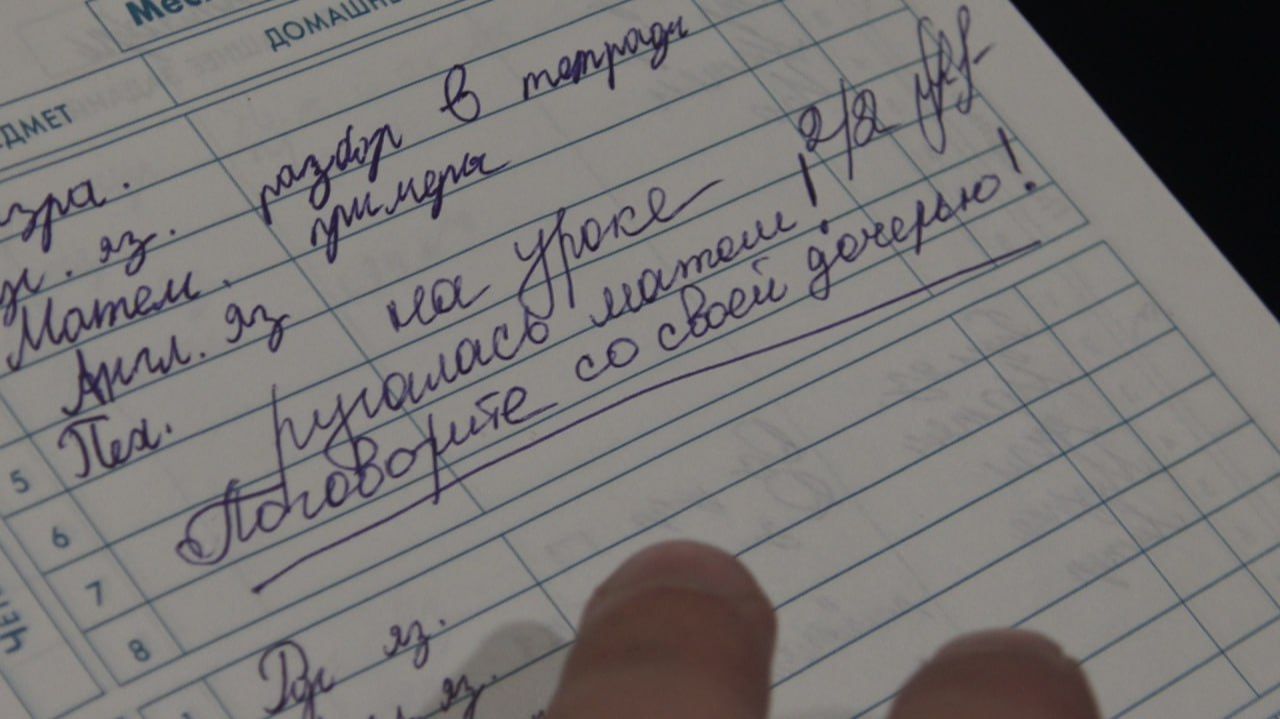 ДОМАШН
ЕДМЕТ
разбор в тетради
яз. примеры
Матем. 2/2
Англ. яз на уроке
Тех. ругалась матом!
Поговорите со своей дочерью!
5
6
7
8
ЧЕТ
Рус яз.
яз.